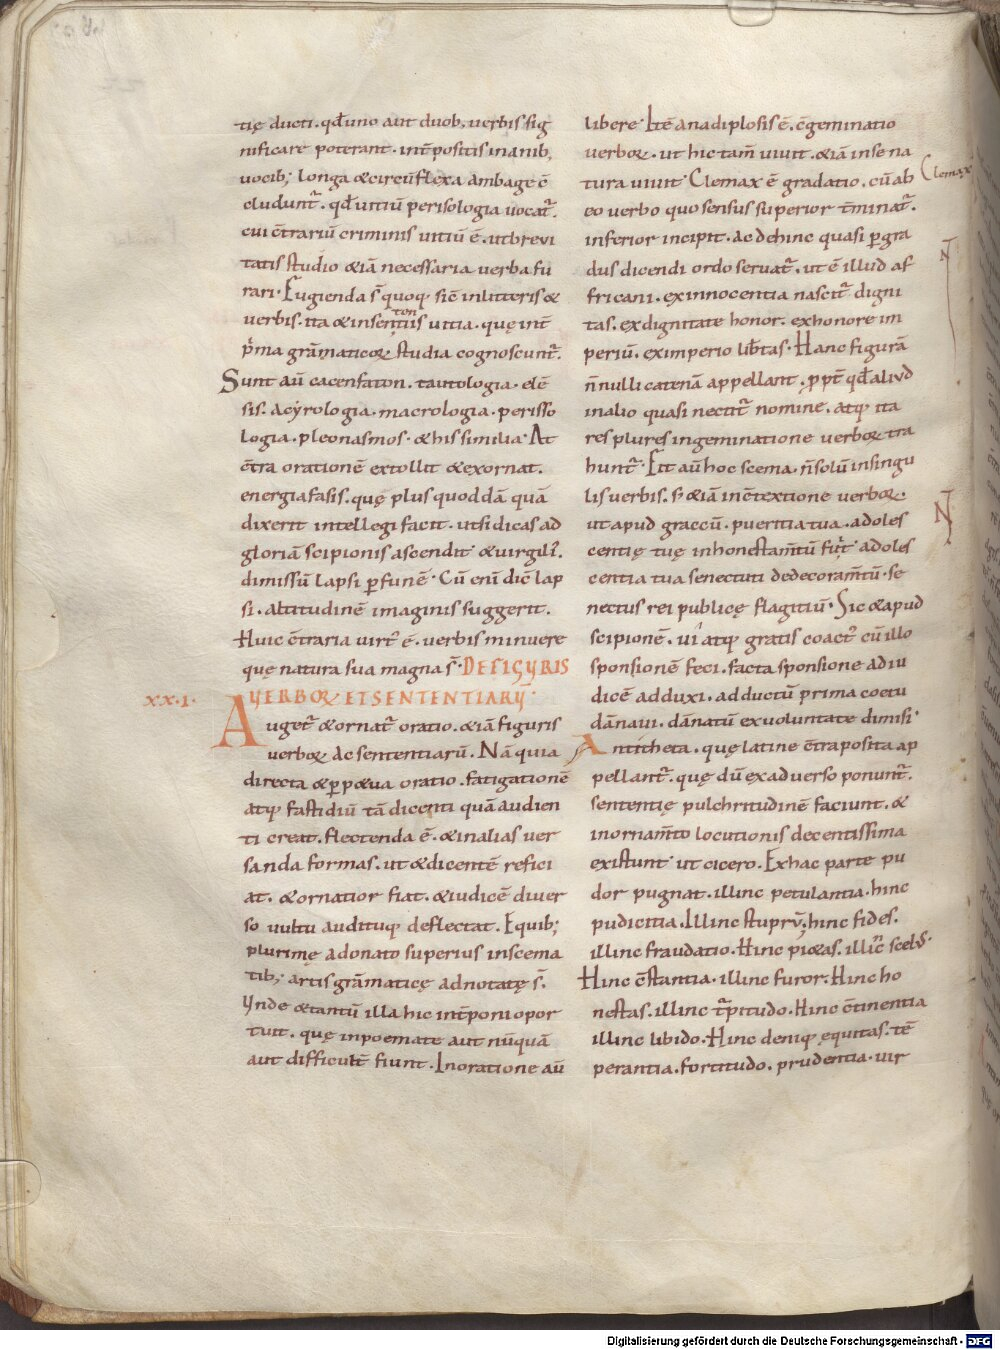 tię ducti. qđ uno aut duob; uerbis sig
nificare poterant. int̄positis inanib;
uocib; longa & circūflexa ambage c̄
cludunt̄. qđ uitiū perisologia uocat̄.
cui c̄trariū criminis uitiū ē. ut breui
tatis studio &iā necessaria uerba fu
rari. Fugienda s̄ quoq; sic in litteris &
uerbis. ita & in sententiis uitia. quę int̄
ton
p̄ma grāmaticoꝝ studia cognoscunt̄.
Sunt aū cacenfaton. tautologia. elē
sis. acyrologia. macrologia. perisso
logia. pleonasmos. & his similia. At
c̄tra orationē extollit & exornat.
energia fasis. quę plus quoddā quā
dixerit intellegi facit. ut si dicas ad
gloriā scipionis ascendit & uirgiliˀ.
dimissū lapsi p̱ funē. Cū eni dic̄ lap
si. altitudinē imaginis suggerit.
Huic c̄traria uirt̄ ē. uerbis minuere
quę natura sua magna s̄. DE FIGURIS
XX.I. UERBOꝜ ET SENTENTIARŪ.
Auget̄ & ornat̄ oratio. &iā figuris
uerboꝝ ac sententiarū. Nā quia
directa & p̱p&ua oratio. fatigationē
atq; fastidiū tā dicenti quā audien
ti creat. flectenda ē. & in alias uer
sanda formas. ut & dicentē refici
at. & ornatior fiat. & iudicē diuer
so uultu audituq; deflectat. E quib;
plurimę a donato superius in scema
tib; artis grāmaticę adnotatę s̄.
Unde & tantū illa hic int̄poni opor
tuit. quę in poemate aut nūquā
aut difficult̄ fiunt. In oratione aū
libere. Itē anadiplosis ē. c̄geminatio
uerboꝝ. ut hic tam̄ uiuit. &iā in sena
tura uiuit. Clemax ē gradatio. cū ab
Clemax
eo uerbo quo sensus superior t̄minat̄.
inferior incipit. ac dehinc quasi p̱ gra
dus dicendi ordo seruat̄. ut ē illud af
N̄
fricani. ex innocentia nascit̄ digni
tas. ex dignitate honor. ex honore im
periū. ex imperio lib̄tas. Hanc figurā
n̄nulli catenā appellant. ppt̄ qđ aliud
in alio quasi nectit̄ nomine. atq; ita
res plures in geminatione uerboꝝ tra
hunt̄. Fit aū hoc scema. n̄ solū in singu
lis uerbis. s; &iā in c̄textione uerboꝝ.
N̄
ut apud graccū. pueritia tua. adoles
centię tuę inhonestam̄tū fuit. adoles
centia tua senectuti dedecoram̄tū. se
nectus rei publicę flagitiū. Sic & apud
scipionē. ui atq; gratis coact̄ cū illo
sponsionē feci. facta sponsione ad iu
dicē adduxi. adductū prima coetu
dānaui. dānatū ex uoluntate dimisi.
Antitheta. quę latine c̄traposita ap
pellant̄. quę dū ex aduerso ponunt̄.
sententię pulchritudinē faciunt. &
in ornam̄to locutionis decentissima
existunt. ut cicero. Ex hac parte pu
dor pugnat. illinc petulantia. hinc
pudicitia. Illinc stuprū. hinc fides.
illinc fraudatio. Hinc pi&as. illic̄ scelˀ.
Hinc c̄stantia. illinc furor. Hinc ho
nestas. illinc t̄pitudo. Hinc c̄tinentia
illinc libido. Hinc deniq; ęquitas. tē
perantia. fortitudo. prudentia. uir
Digitalisierung gefördert durch die Deutsche Forschungsgemeinschaft - DFG